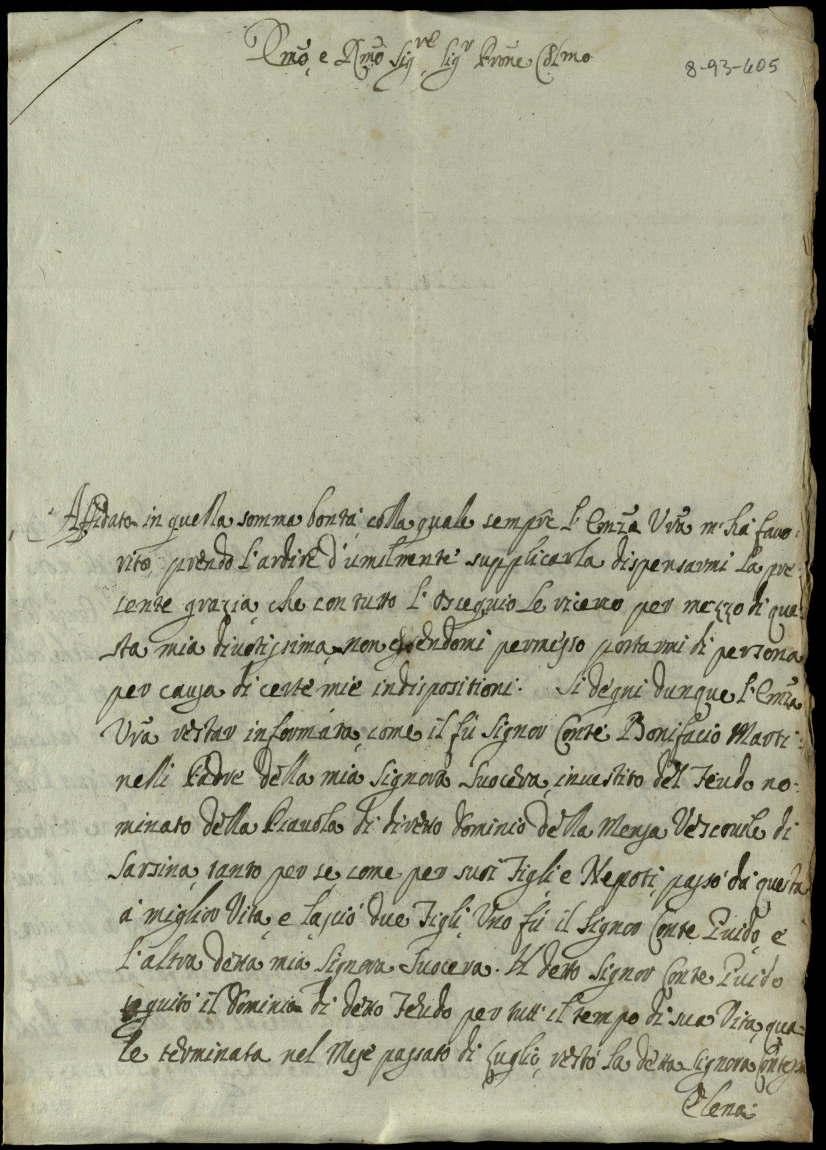 Emõ, e Rmõ Sig.re Sig.r Prone Colmo
8-93-605
Affidato in quella somma bontà, colla quale sempre l'Emza Vrã m'ha favo-
rito, prendo l'ardire d'umilmente supplicarla dispensarmi la pre-
sente grazia, che con tutto l'osseguio Le ricerco per mezzo di que-
sta mia divotissima non essendomi permesso portarmi di persona
per causa di certe mie indispositioni. Si degni dunque l'Emza
Vrã restar informata, come il fù Signor Conte Bonifacio Marti-
nelli Padre della mia Signora Suocera, investito del Feudo no-
minato della Piavola di diretto Dominio della Mensa Vescovile di
Sarsina, tanto per se come per suoi Figli, e Nepoti, passò da questa
à miglior Vita, e lasciò due Figli, Uno fù il Signor Conte Guido, e
l'altra detta mia Signora Suocera. Il detto Signor Conte Guido
seguitò il Dominio di detto Feudo per tutt'il tempo di sua Vita, qua-
le terminata nel Mese passato di Luglio, restò la detta Signora Contessa
Elena: